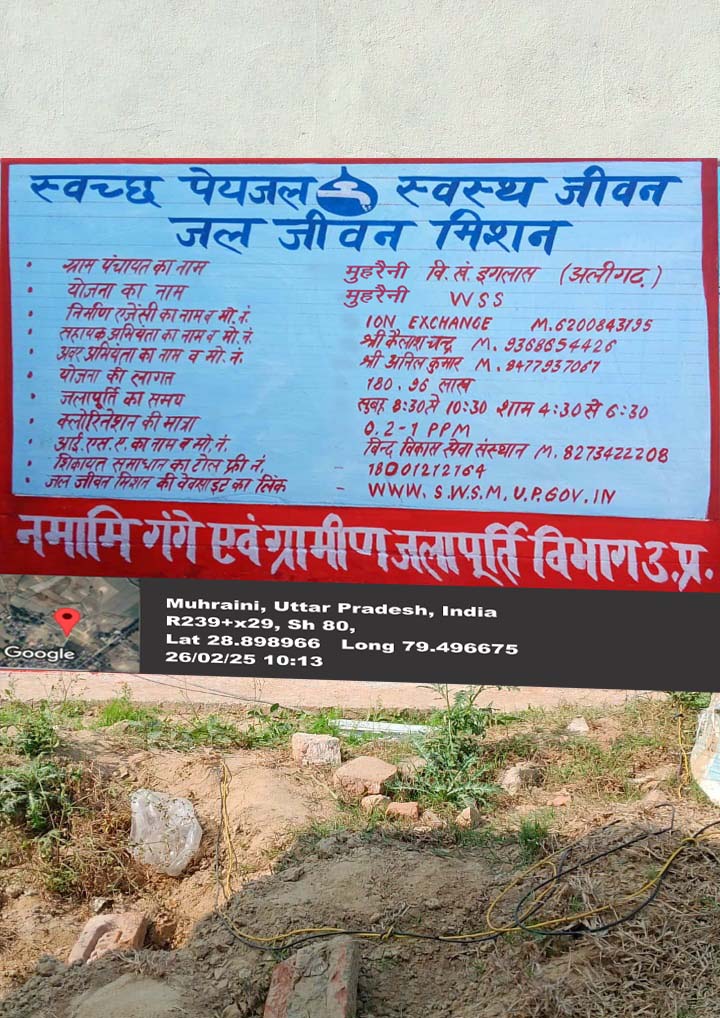 स्वच्छ पेयजल स्वस्थ जीवन
जल जीवन मिशन
• ग्राम पंचायत का नाम मुहरैनी वि. खं. इगलास (अलीगढ़)
• योजना का नाम मुहरैनी WSS
• निर्माण एजेंसी का नाम व मो. नं. ION EXCHANGE M. 6200843195
• सहायक अभियंता का नाम व मो. नं. श्री कैलाश चन्द्र M. 9368654426
• अवर अभियंता का नाम व मो. नं. श्री अनिल कुमार M. 9477937067
• योजना की लागत 180.96 लाख
• जलापूर्ति का समय सुबह 8:30 से 10:30 शाम 4:30 से 6:30
• क्लोरिनेशन की मात्रा 0.2-1 PPM
• आई. एस. ए. का नाम व मो. नं. बिन्द विकास सेवा संस्थान M. 8273422208
• शिकायत समाधान का टोल फ्री नं. - 18001212164
• जल जीवन मिशन की वेवसाइट का लिंक - WWW. S.W.S.M. U.P. GOV. IN
नमामि गंगे एवं ग्रामीण जलापूर्ति विभाग उ. प्र.
Google
Muhraini, Uttar Pradesh, India
R239+x29, Sh 80,
Lat 28.898966 Long 79.496675
26/02/25 10:13